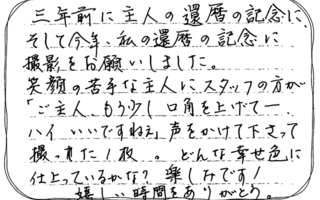 三年前に主人の還暦の記念に、
そして今年、私の還暦の記念に
撮影をお願いしました。
笑顔の苦手な主人にスタッフの方が
「ご主人、もう少し口角を上げてー
ハイ いいですねぇ」声をかけて下さって
撮れた1枚。どんな幸せ色に
仕上っているかな? 楽しみです!
嬉しい時間をありがとう。